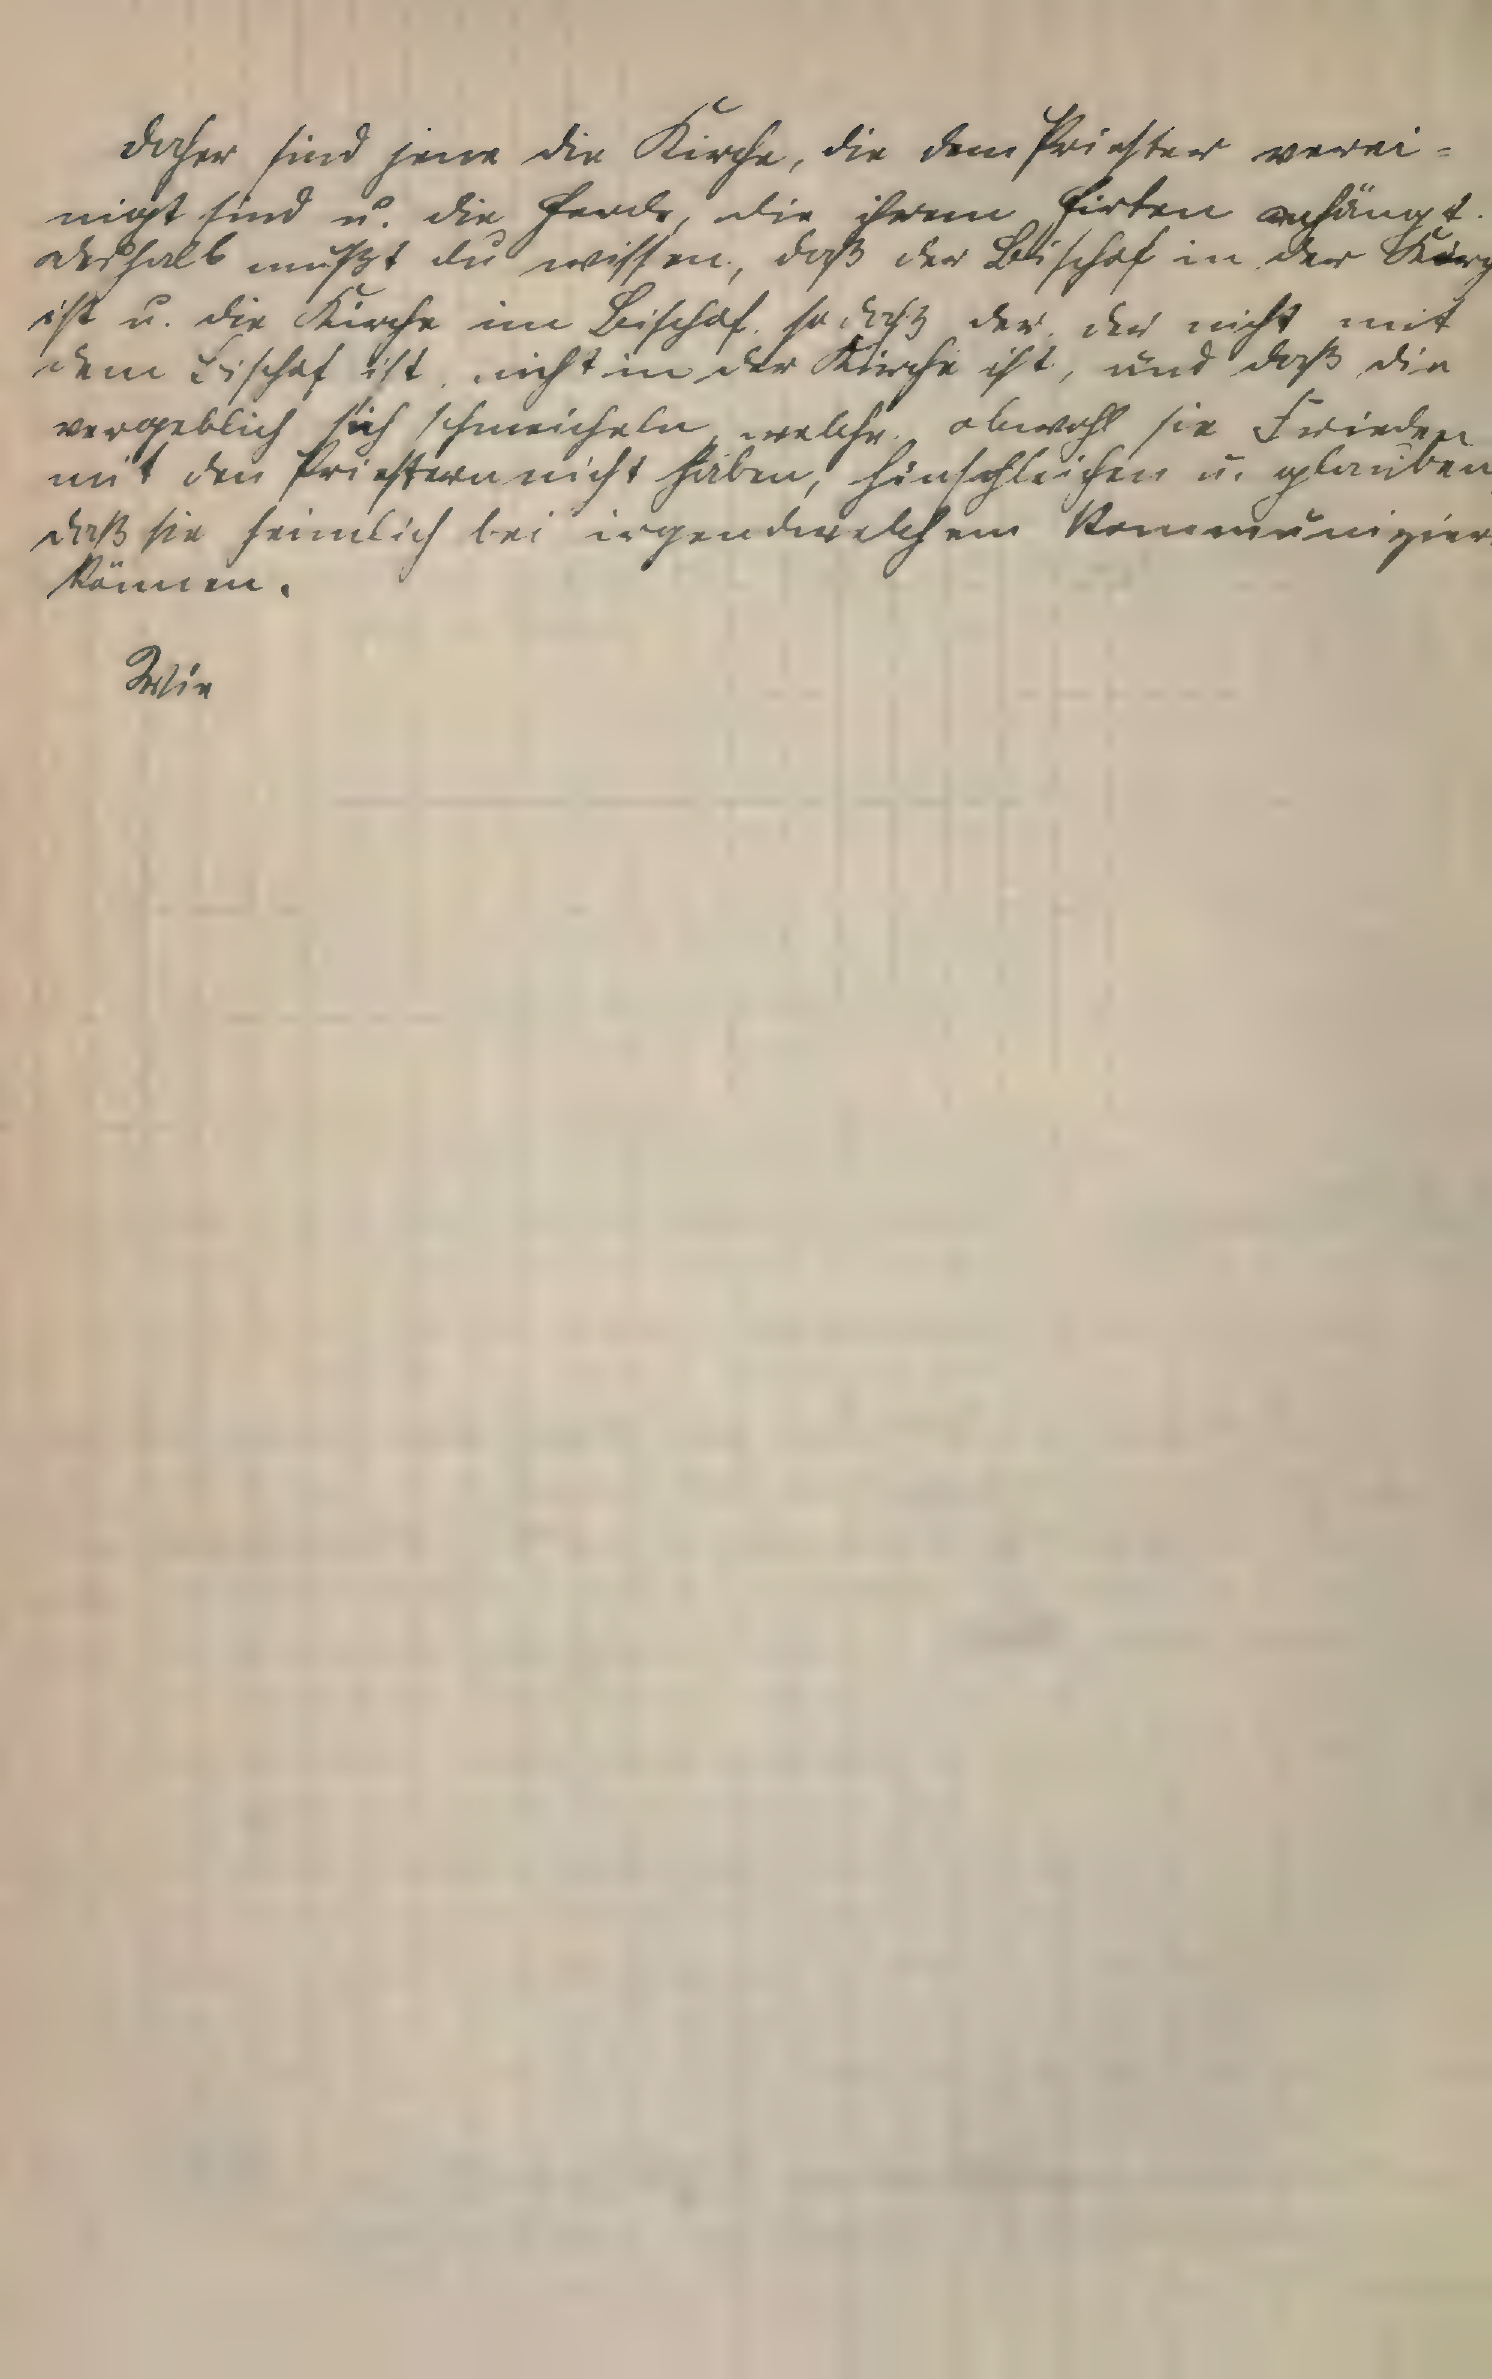 Daher sind jene die Kirche, die dem Priester verei-
nigt sind u. die Herde, die ihrem Hirten anhängt.
deshalb mußt du wissen, daß der Bischof in der Kirch
ist u. die Kirche im Bischof. so daß der, der nicht mit
dem Bischof ist, nicht in der Kirche ist, und daß die
vergeblich sich schmeicheln, welche, obwohl sie Frieden
mit den Priestern nicht haben, hinschleichen u. glauben,
daß sie heimlich bei irgendwelchem kommunizier
können.
Wie